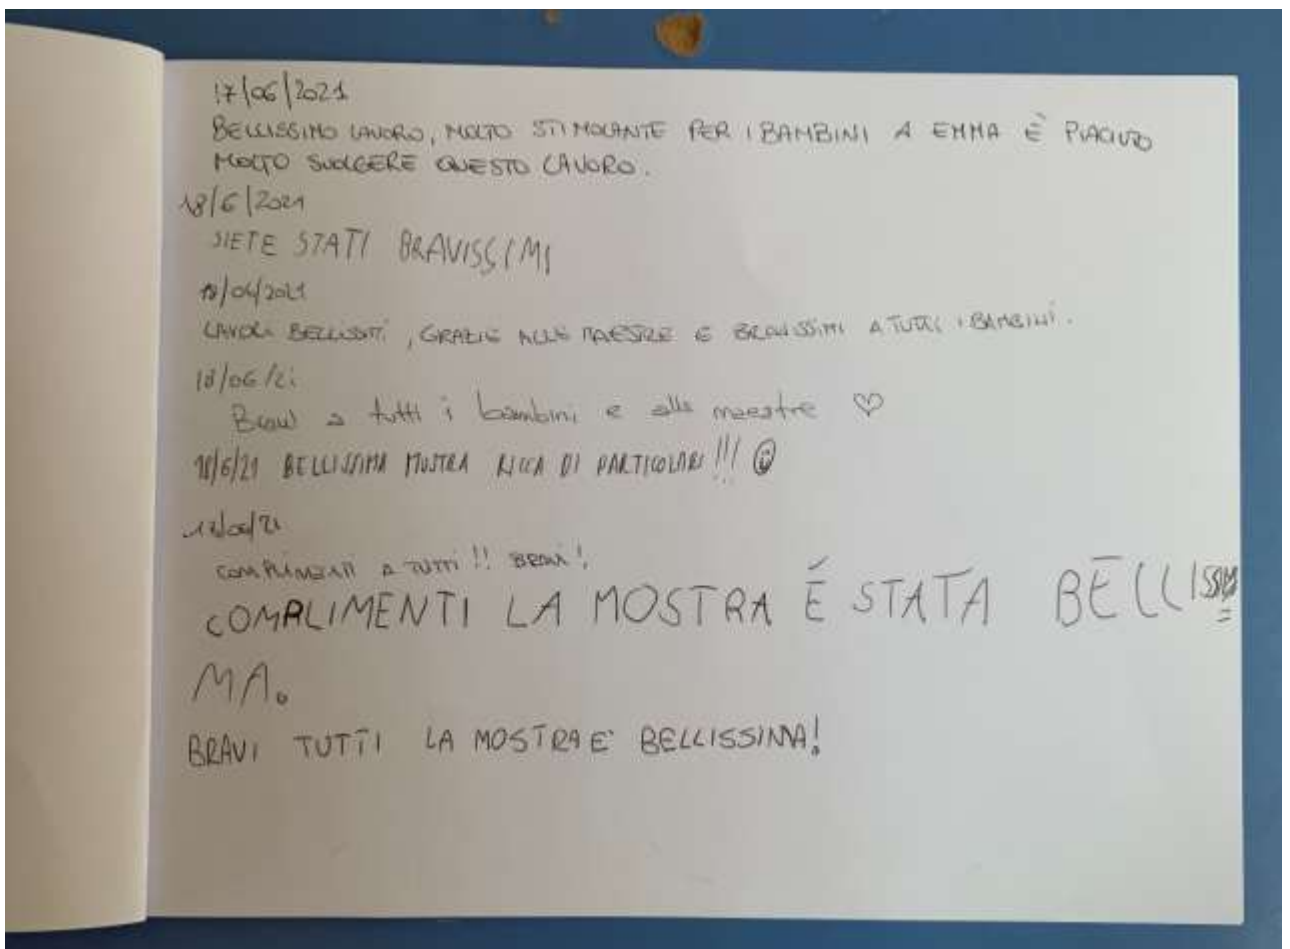 17/06/2021
BELLISSIMO LAVORO, MOLTO STIMOLANTE PER I BAMBINI A EMMA È PIACIUTO
MOLTO SVOLGERE QUESTO LAVORO.
18/6/2021
SIETE STATI BRAVISSIMI
18/06/2021
LAVORI BELLISSIMI, GRAZIE ALLE MAESTRE E BRAVISSIMI A TUTTI I BAMBINI.
18/06/21
Bravi a tutti i bambini e alle maestre ♡
18/6/21 BELLISSIMA MOSTRA RICCA DI PARTICOLARI!!! ☺
18/06/21
COMPLIMENTI A TUTTI!! BRAVI!
COMPLIMENTI LA MOSTRA É STATA BELLISSI=
MA.
BRAVI TUTTI LA MOSTRA E' BELLISSIMA!